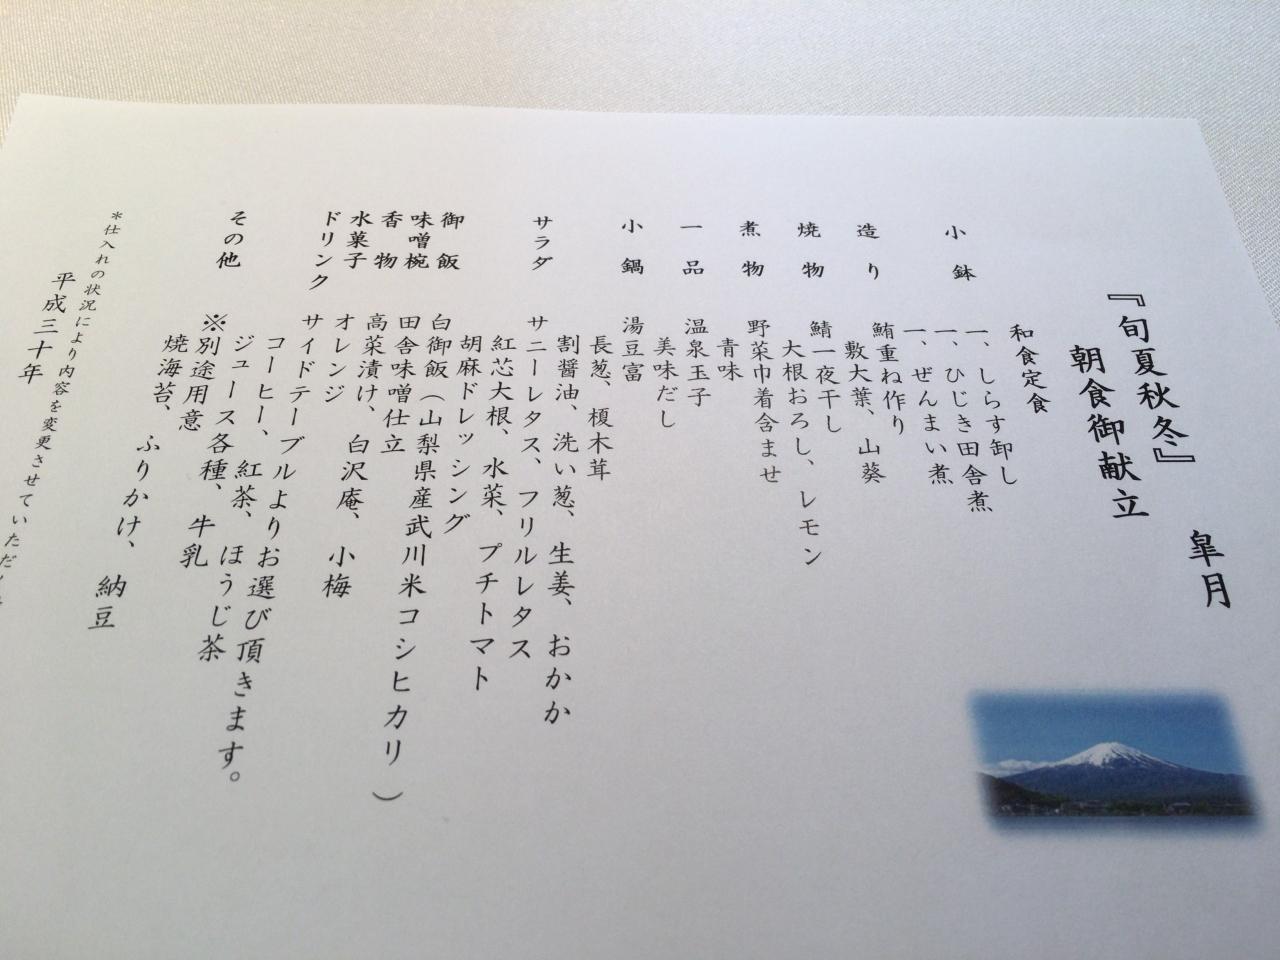 皐月
『旬夏秋冬』
朝食御献立
和食定食
小鉢 一、しらす卸し
一、ひじき田舎煮
一、ぜんまい煮
造り 鮪重ね作り
敷大葉、山葵
焼物 鯖一夜干し
大根おろし、レモン
煮物 野菜巾着含ませ
青味
一品 温泉玉子
美味だし
小鍋 湯豆富
長葱、榎木茸
割醤油、洗い葱、生姜、おかか
サラダ サニーレタス、フリルレタス
紅芯大根、水菜、プチトマト
胡麻ドレッシング
御飯 白御飯(山梨県産武川米コシヒカリ)
味噌椀 田舎味噌仕立
香物 高菜漬け、白沢庵、小梅
水菓子 オレンジ
ドリンク サイドテーブルよりお選び頂きます。
コーヒー、紅茶、ほうじ茶
ジュース各種、牛乳
その他 ※別途用意
焼海苔、ふりかけ、納豆
*仕入れの状況により内容を変更させていただ
平成三十年